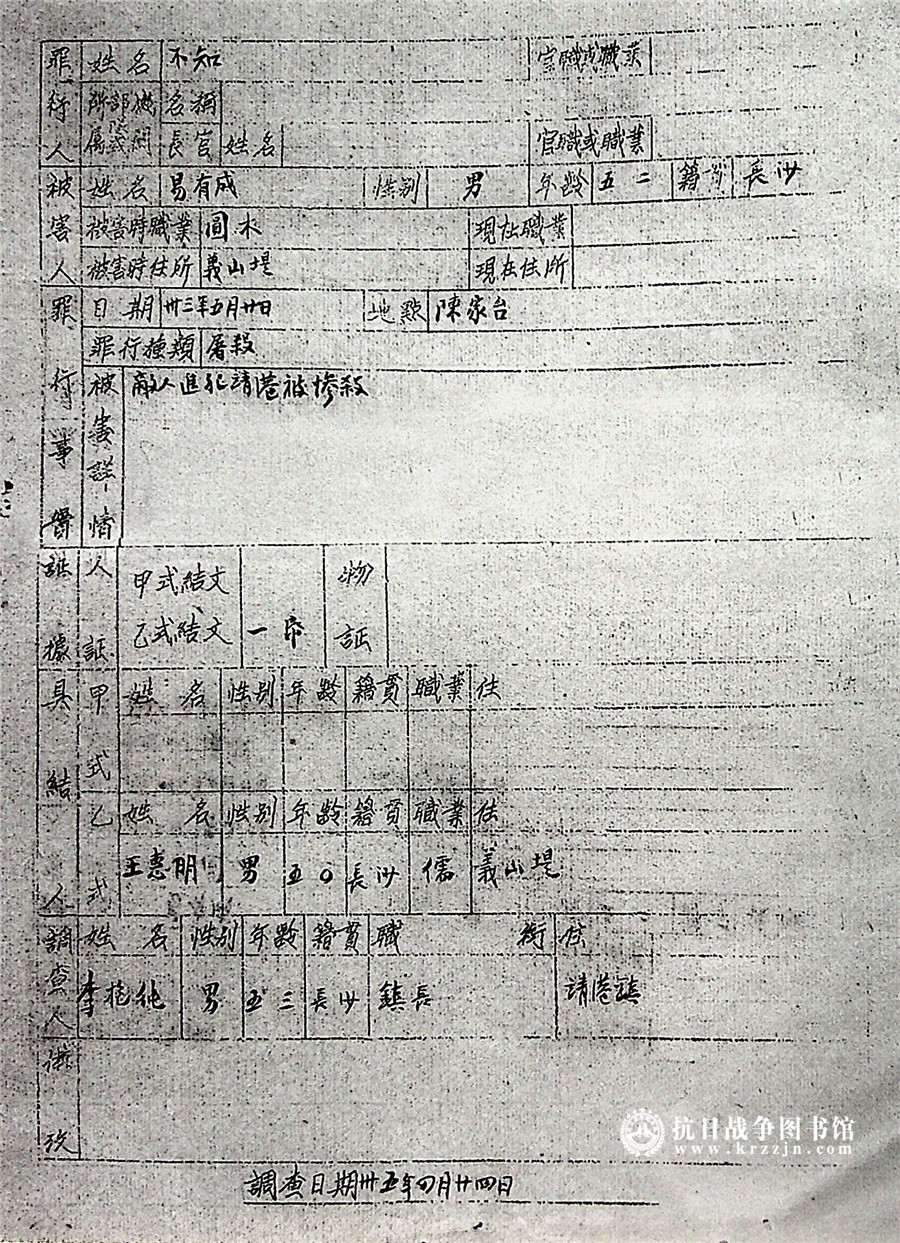 罪行人 姓名 不知 官職或職業
所屬部隊或機關 名稱
長官 姓名 官職或職業
被害人 姓名 易有成 性别 男 年齡 五二 籍貫 長沙
被害時職業 圓木 現在職業
被害時住所 義山堤 現在住所
罪行事實 日期 卅三年五月廿日 地點 陳家台
罪行種類 屠殺
被害詳情 敵人進犯靖港被慘殺
証據 人証 甲式結文 物証
乙式結文 一帋
具結人 甲式 姓名 性别 年齡 籍貫 職業 住
乙式 姓名 性别 年齡 籍貫 職業 住
王惠明 男 五〇 長沙 儒 義山堤
調查人 姓名 性别 年齡 籍貫 職銜 住
李 純 男 五三 長沙 鎮長 靖港鎮
備攷
抗日战争图书馆
www.krzzjn.com
調查日期卅五年四月廿四日